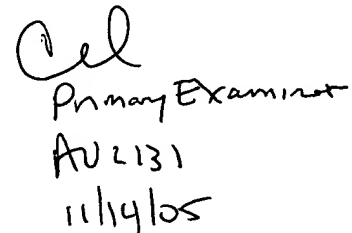 Primary Examiner
AU 2131
11/14/05